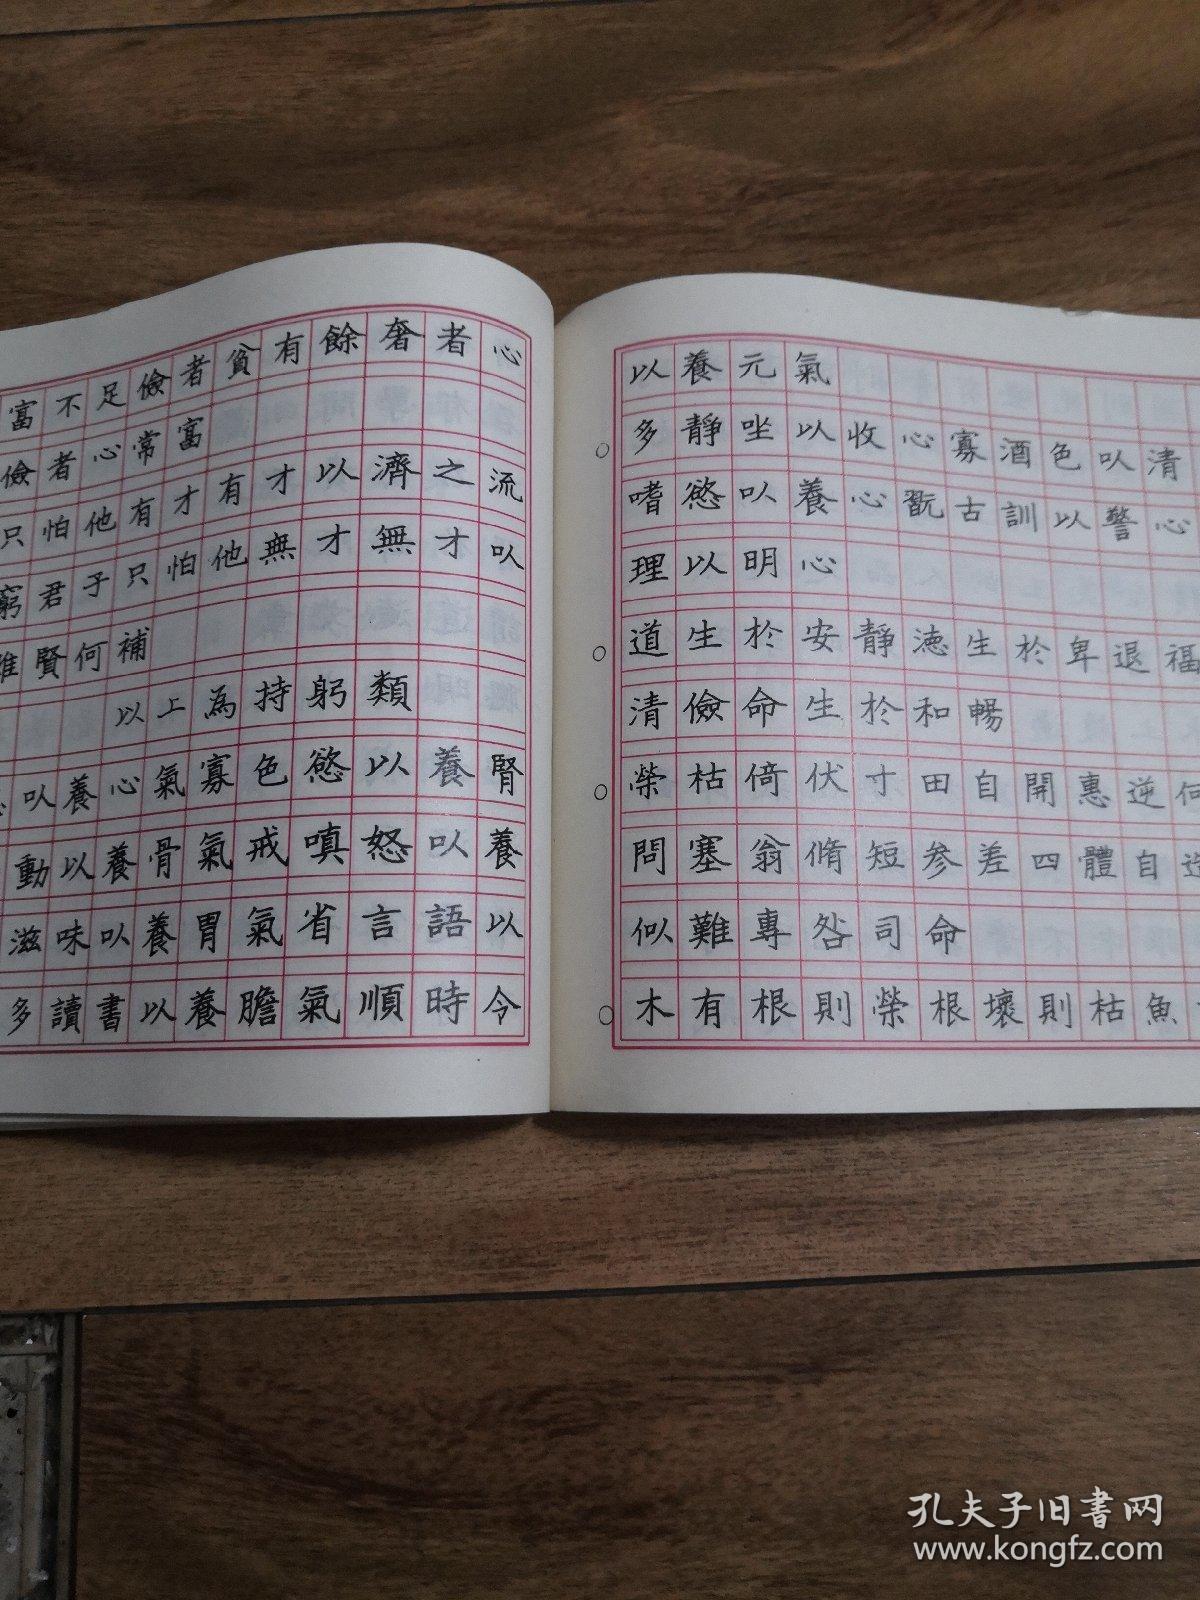 富不足儉者貧有餘奢者心
儉者心常富
只怕他有才有才以濟之流
窮君子只怕他無才無才以
雖賢何補
以上為持躬類
以養心氣寡色慾以養腎
動以養骨氣戒嗔怒以養
滋味以養胃氣省言語以
多讀書以養膽氣順時令
以養元氣
多靜坐以收心寡酒色以清
嗜慾以養心翫古訓以警心
理以明心
道生於安靜德生於卑退福
清儉命生於和暢
榮枯倚伏寸田自開惠逆何
問塞翁脩短參差四體自造
似難專咎司命
木有根則榮根壞則枯魚
孔夫子旧書网
www.kongfz.com